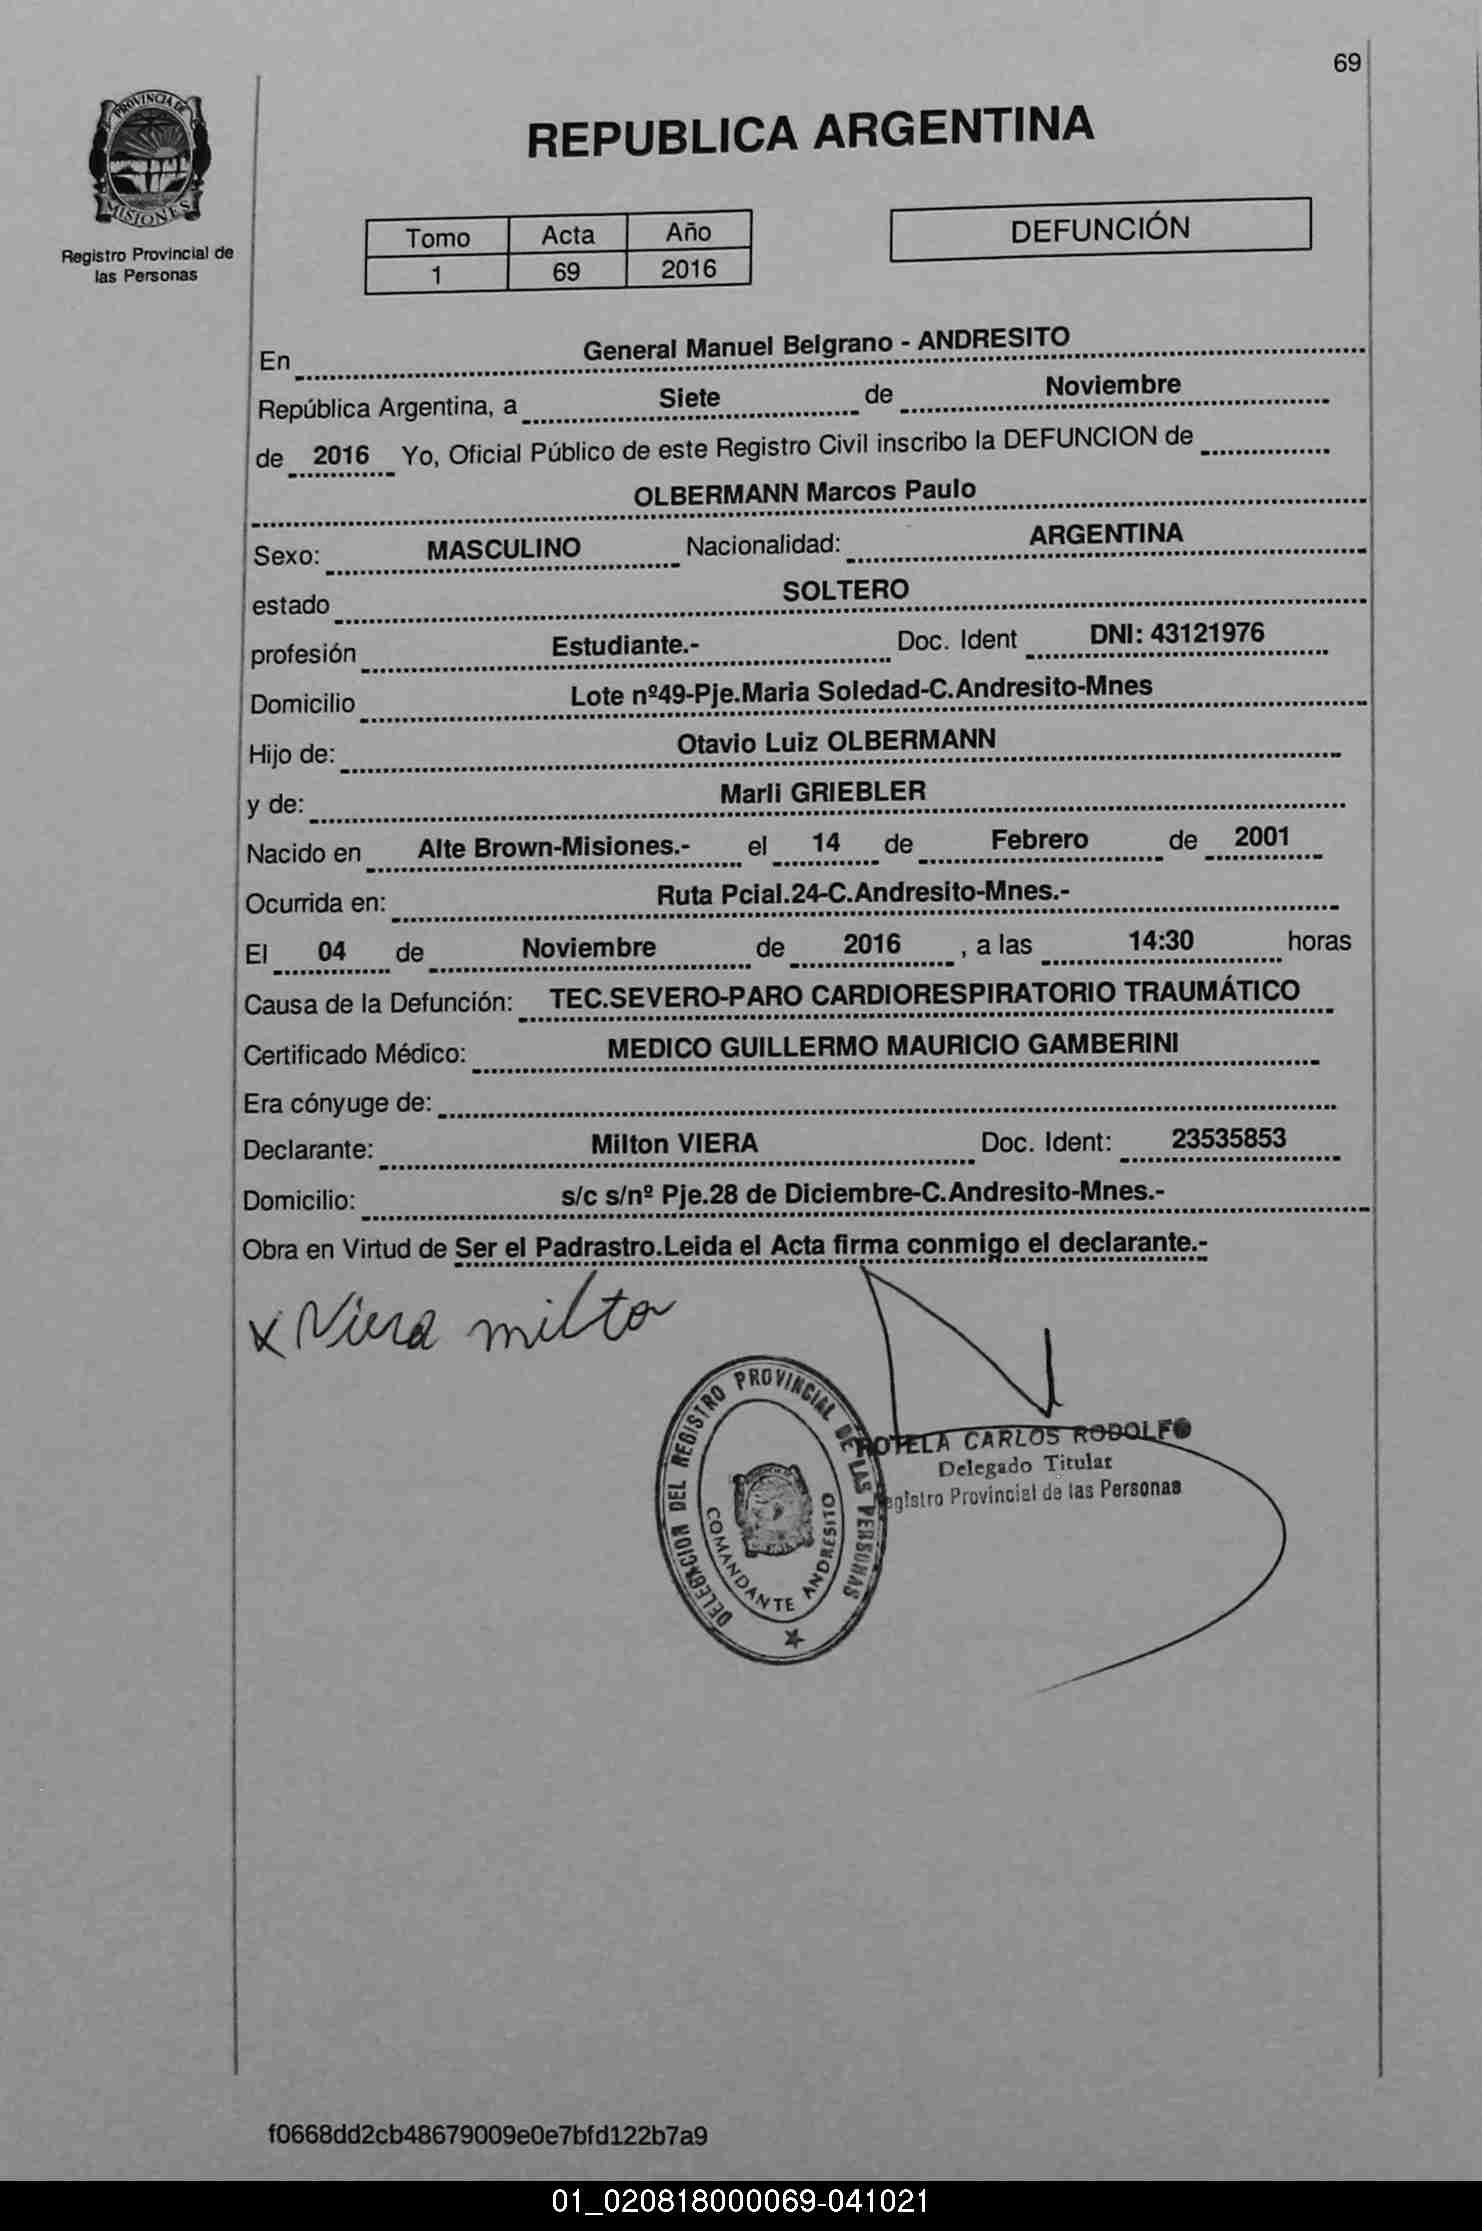 69
PROVINCIA DE
MISIONES
Registro Provincial de
las Personas
REPUBLICA ARGENTINA
Tomo Acta Año
1 69 2016
DEFUNCIÓN
En General Manuel Belgrano - ANDRESITO
República Argentina, a Siete de Noviembre
de 2016 Yo, Oficial Público de este Registro Civil inscribo la DEFUNCION de
OLBERMANN Marcos Paulo
Sexo: MASCULINO Nacionalidad: ARGENTINA
estado SOLTERO
profesión Estudiante.- Doc. Ident DNI: 43121976
Domicilio Lote nº49-Pje.Maria Soledad-C.Andresito-Mnes
Hijo de: Otavio Luiz OLBERMANN
y de: Marli GRIEBLER
Nacido en Alte Brown-Misiones.- el 14 de Febrero de 2001
Ocurrida en: Ruta Pcial.24-C.Andresito-Mnes.-
El 04 de Noviembre de 2016 , a las 14:30 horas
Causa de la Defunción: TEC.SEVERO-PARO CARDIORESPIRATORIO TRAUMÁTICO
Certificado Médico: MEDICO GUILLERMO MAURICIO GAMBERINI
Era cónyuge de:
Declarante: Milton VIERA Doc. Ident: 23535853
Domicilio: s/c s/nº Pje.28 de Diciembre-C.Andresito-Mnes.-
Obra en Virtud de Ser el Padrastro.Leida el Acta firma conmigo el declarante.-
x Viera milto
DELEGACION DEL REGISTRO PROVINCIAL DE LAS PERSONAS
COMANDANTE ANDRESITO
ROTELA CARLOS RODOLFO
Delegado Titular
egistro Provincial de las Personas
f0668dd2cb48679009e0e7bfd122b7a9
01_020818000069-041021